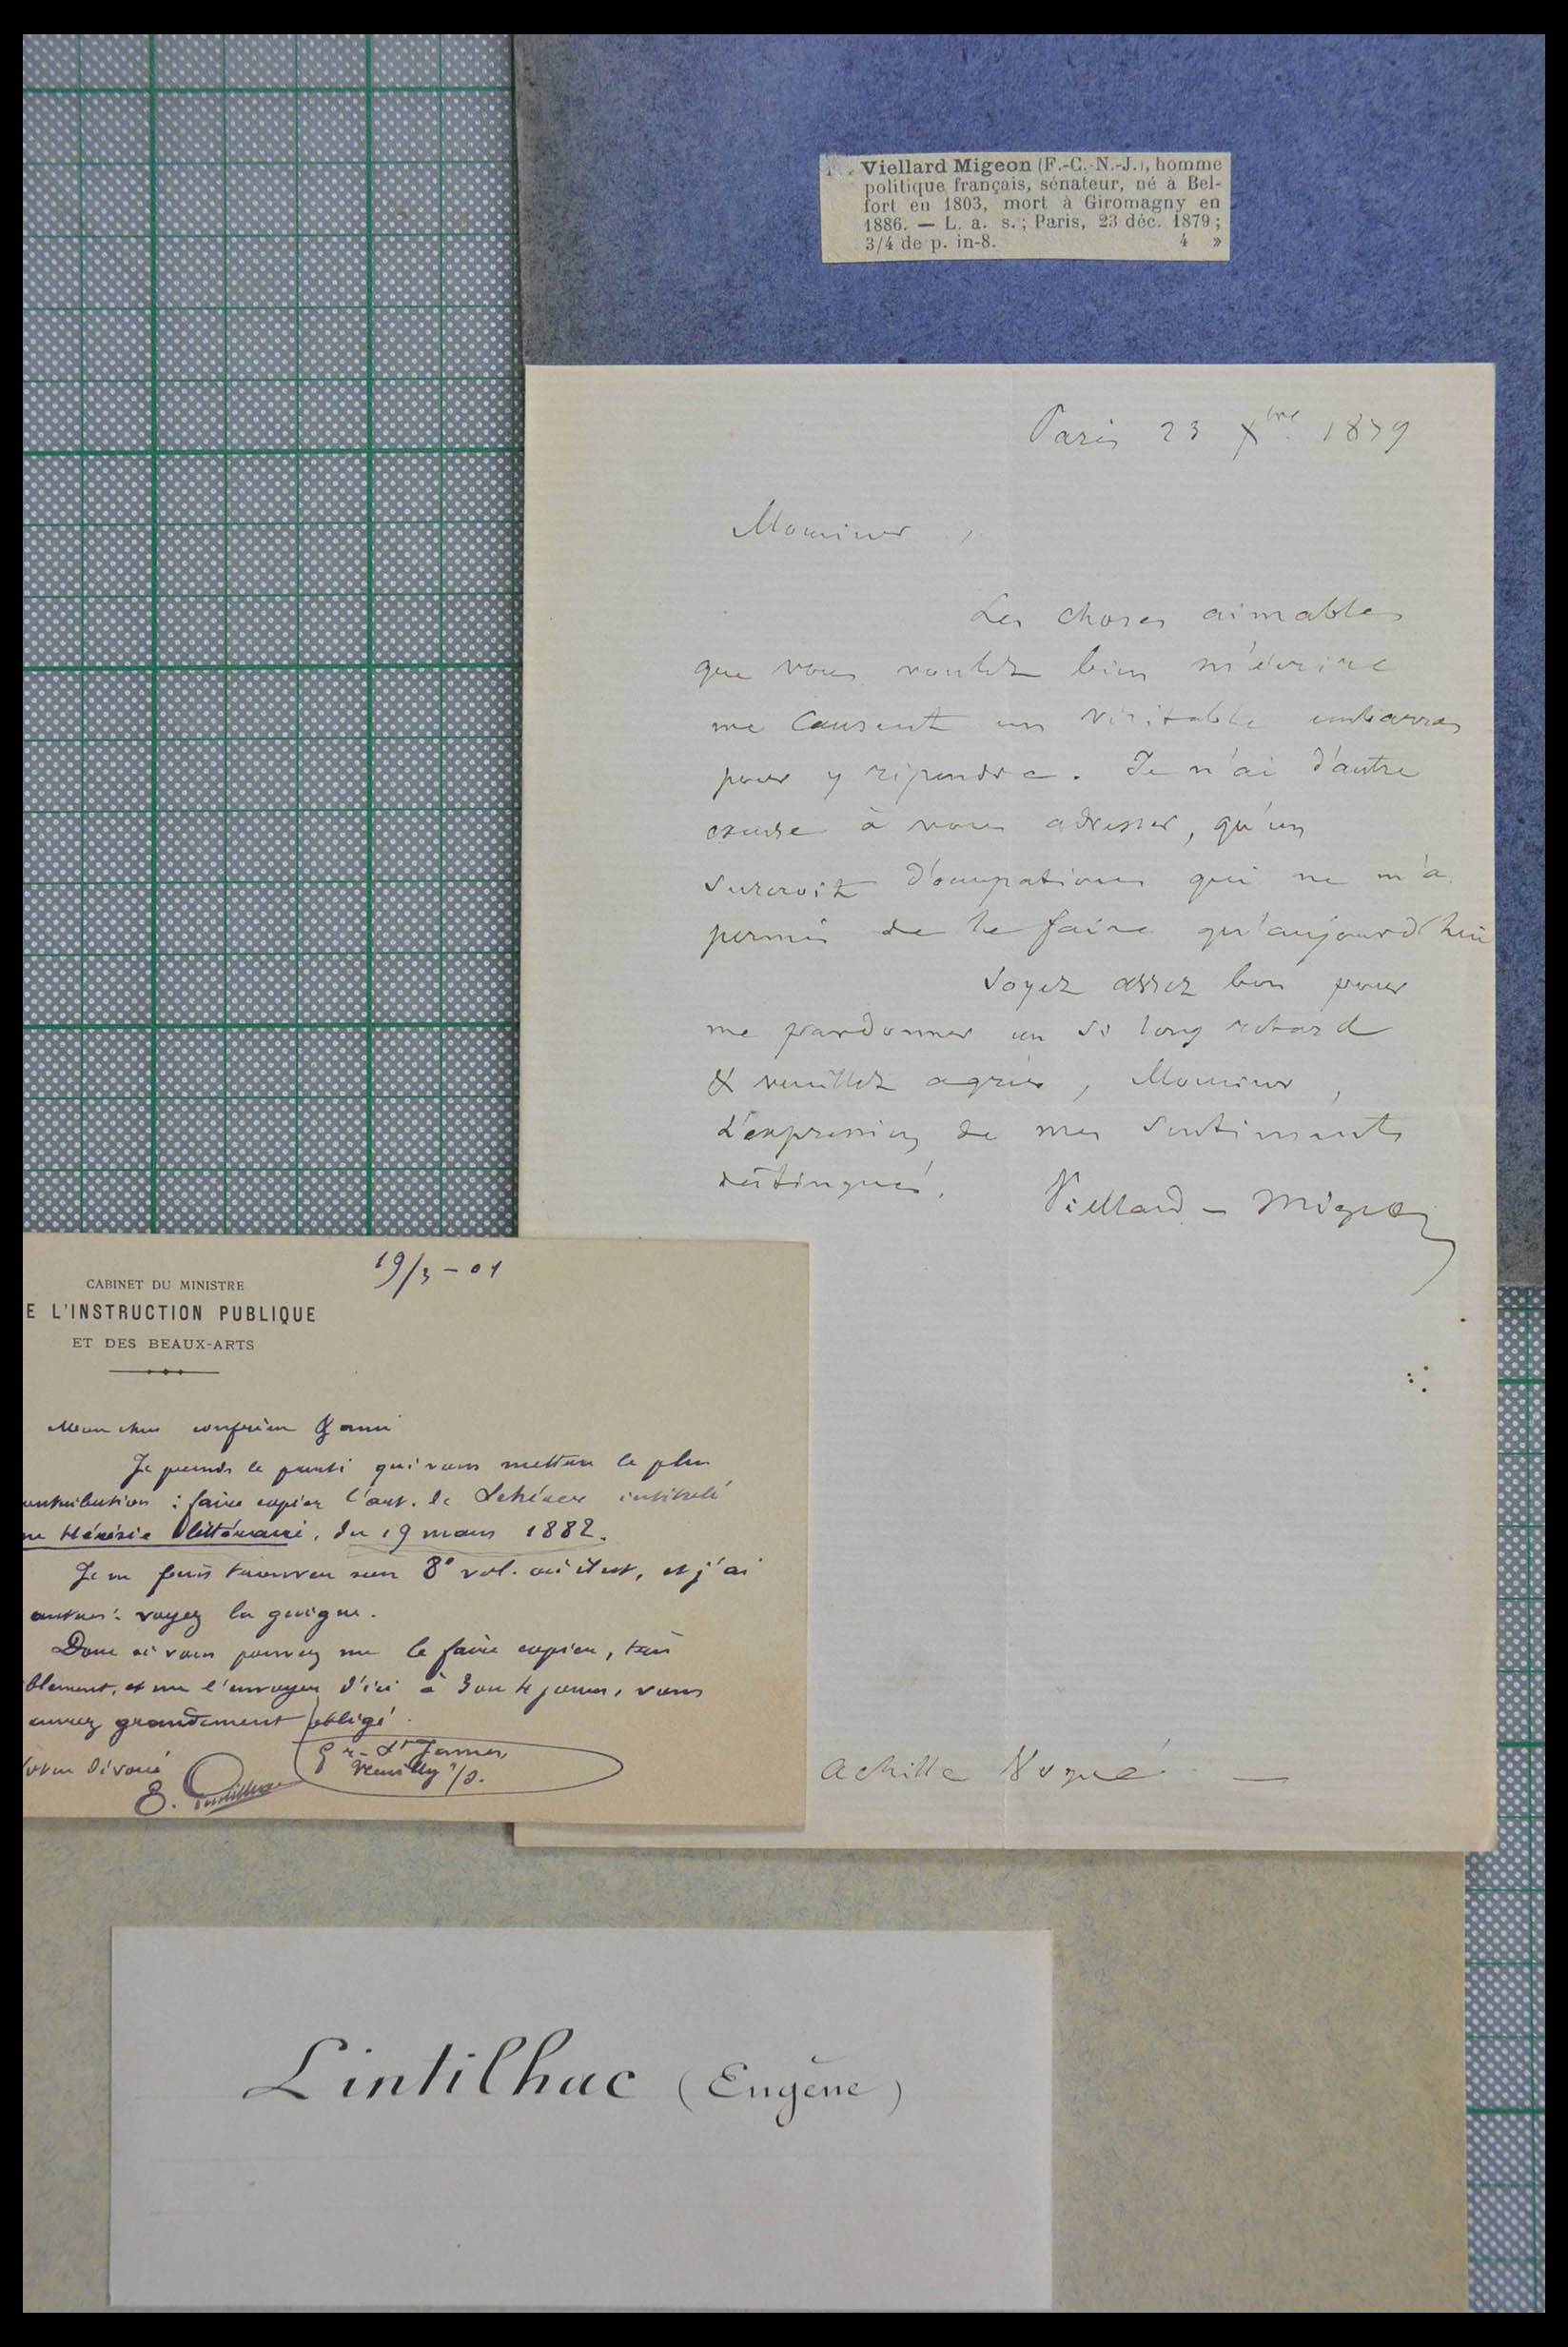 Viellard Migeon (F.-C.-N.-J.), homme
politique français, sénateur, né à Bel-
fort en 1803, mort à Giromagny en
1886. — L. a. s.; Paris, 23 déc. 1879;
3/4 de p. in-8. 4 »
Paris 23 Xbre 1879
Monsieur,
Les choses aimables
que vous voulez bien m'écrire
me causent un véritable embarras
pour y répondre. Je n'ai d'autre
excuse à vous adresser, qu'un
surcroit d'occupations qui ne m'a
permis de le faire qu'aujourd'hui
Soyez assez bon pour
me pardonner un si long retard
& veuillez agréer, Monsieur,
L'expression de mes sentiments
distingués.
Viellard - Migeon
Achille
19/3 - 01
CABINET DU MINISTRE
E L'INSTRUCTION PUBLIQUE
ET DES BEAUX-ARTS
Mon cher confrère & ami
Je prends le parti qui vous mettra le plus
contribution : faire copier l'art. de intitulé
Hérésie littéraire, du 19 mars 1882.
Je ne puis trouver son 8e vol. où il est, et j'ai
autres : voyez la guigne.
Donc si vous pouvez me le faire copier, très
blement, et me l'envoyer d'ici à 3 ou 4 jours, vous
aurez grandement obligé.
dévoué
E. Lintilhac
Neuilly s/S.
Lintilhac (Eugène)